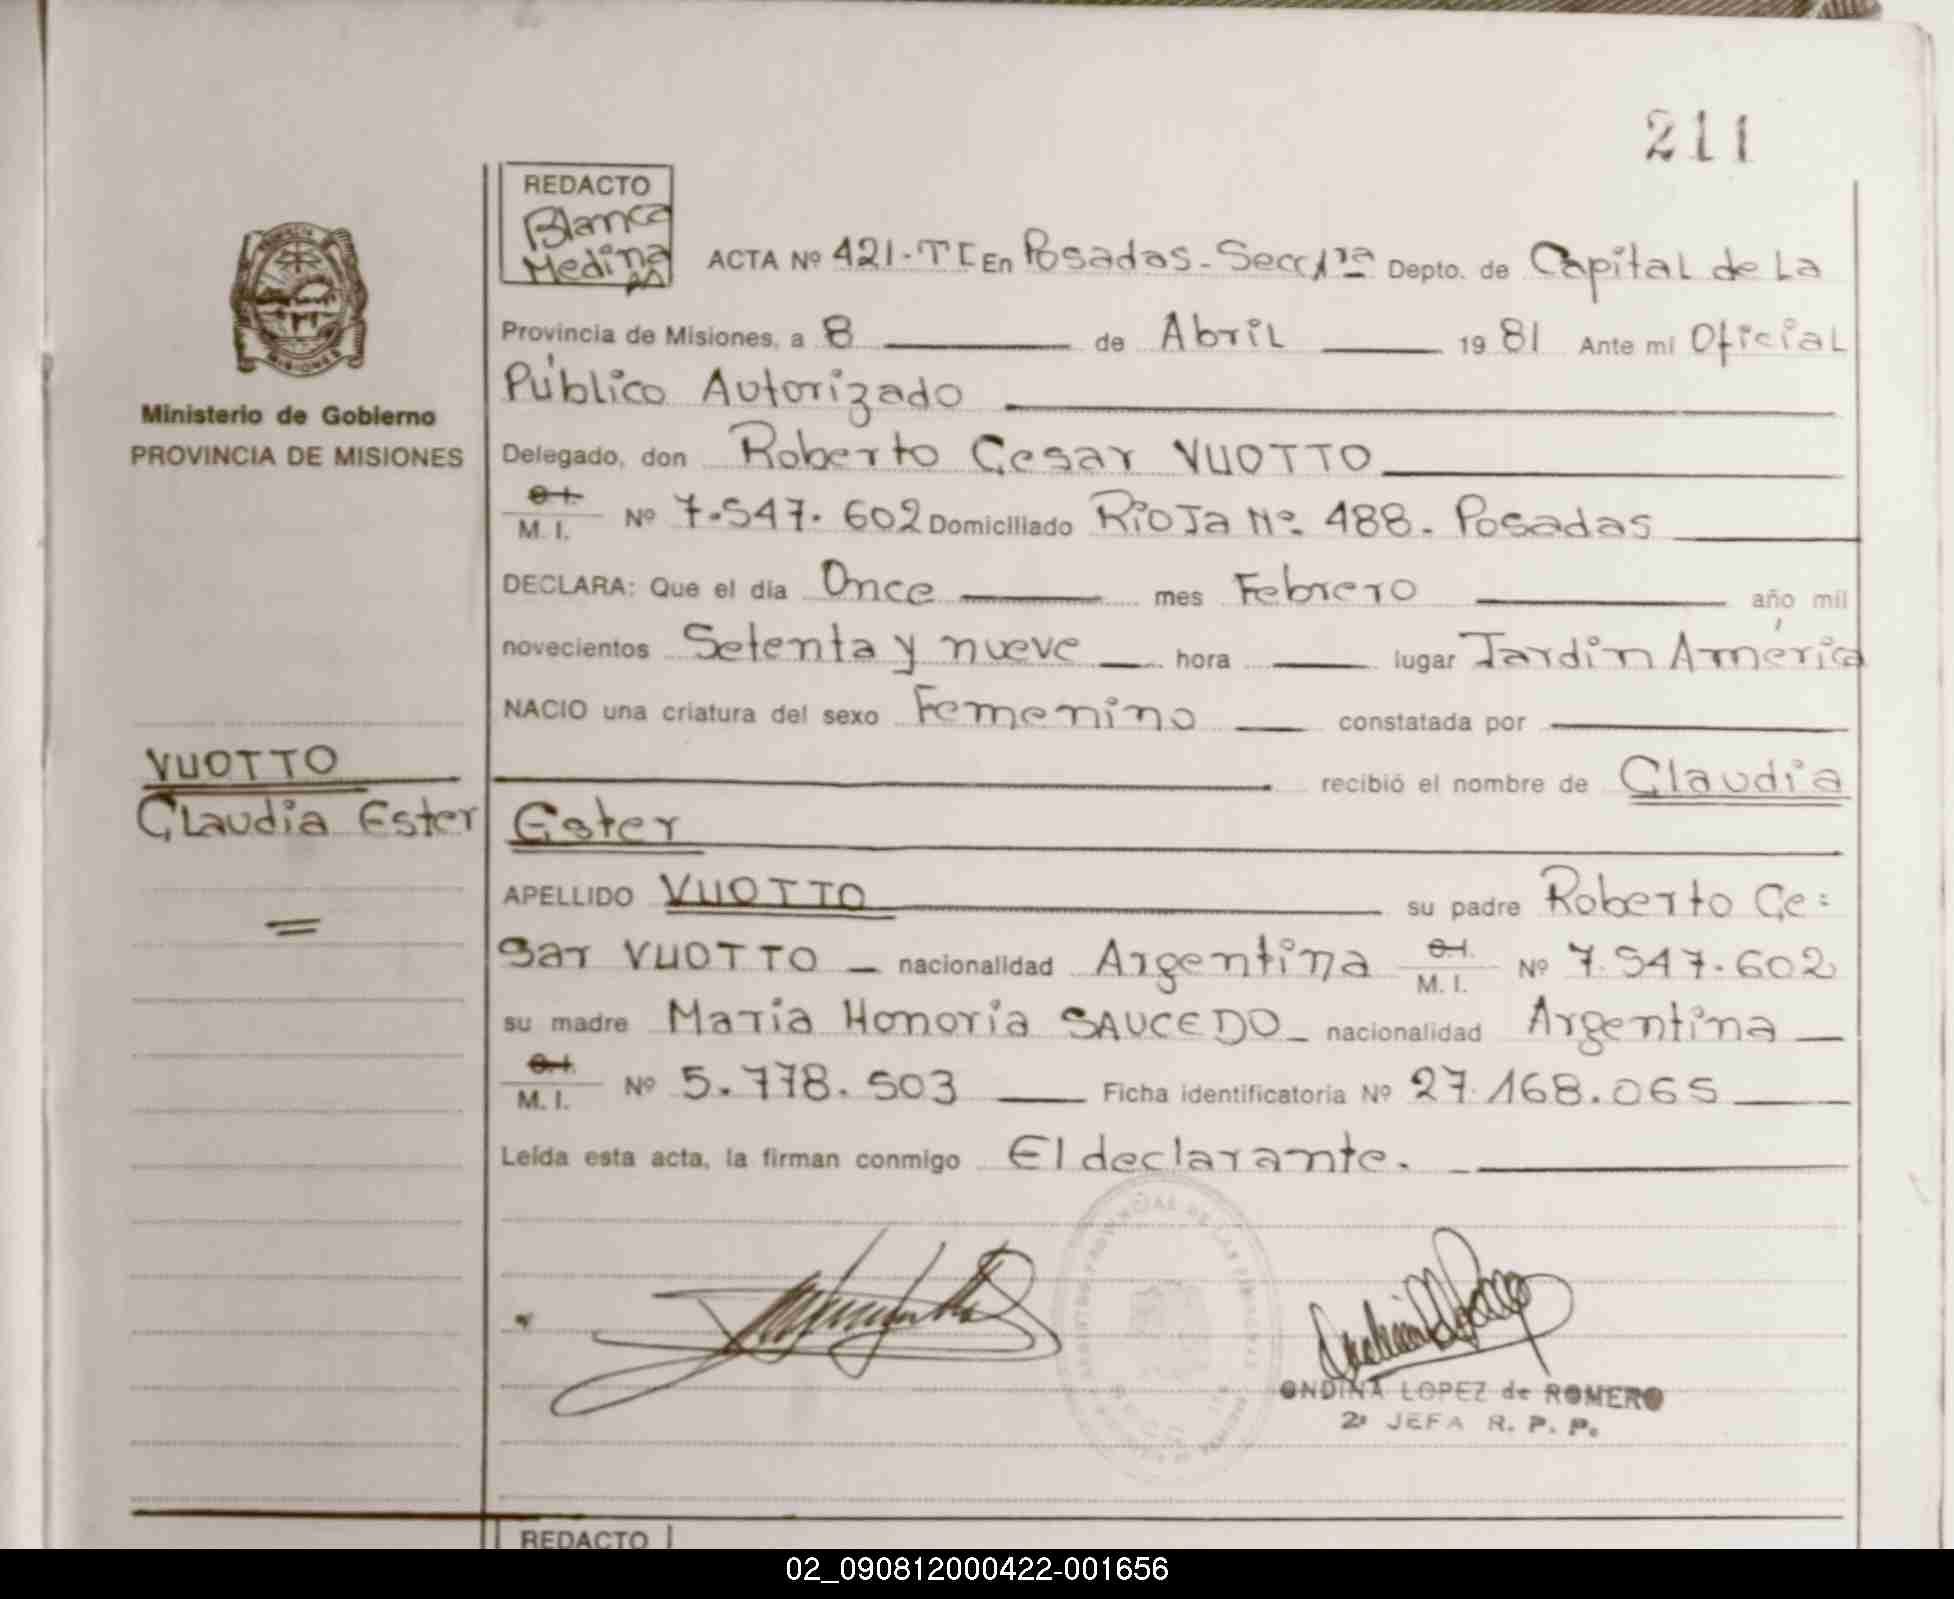 211
REDACTO
Blanca
Medina
ACTA Nº 421-TI En Posadas-Secc 1ra Depto. de Capital de La
Provincia de Misiones, a 8 de Abril 1981 Ante mi Oficial
Público Autorizado
Delegado, don Roberto Cesar VUOTTO
M. I. Nº 7.547.602 Domiciliado Rioja Nº. 488. Posadas
DECLARA: Que el día Once mes Febrero año mil
novecientos Setenta y nueve hora lugar Jardin América
NACIO una criatura del sexo Femenino constatada por
recibió el nombre de Claudia
Ester
APELLIDO VUOTTO su padre Roberto Ce=
sar VUOTTO nacionalidad Argentina M. I. Nº 7.547.602
su madre Maria Honoria SAUCEDO nacionalidad Argentina
M. I. Nº 5.778.503 Ficha identificatoria Nº 27.168.065
Leída esta acta, la firman conmigo El declarante.
ONDINA LOPEZ de ROMERO
2ª JEFA R. P. P.
Ministerio de Gobierno
PROVINCIA DE MISIONES
VUOTTO
Claudia Ester
REDACTO
02_090812000422-001656